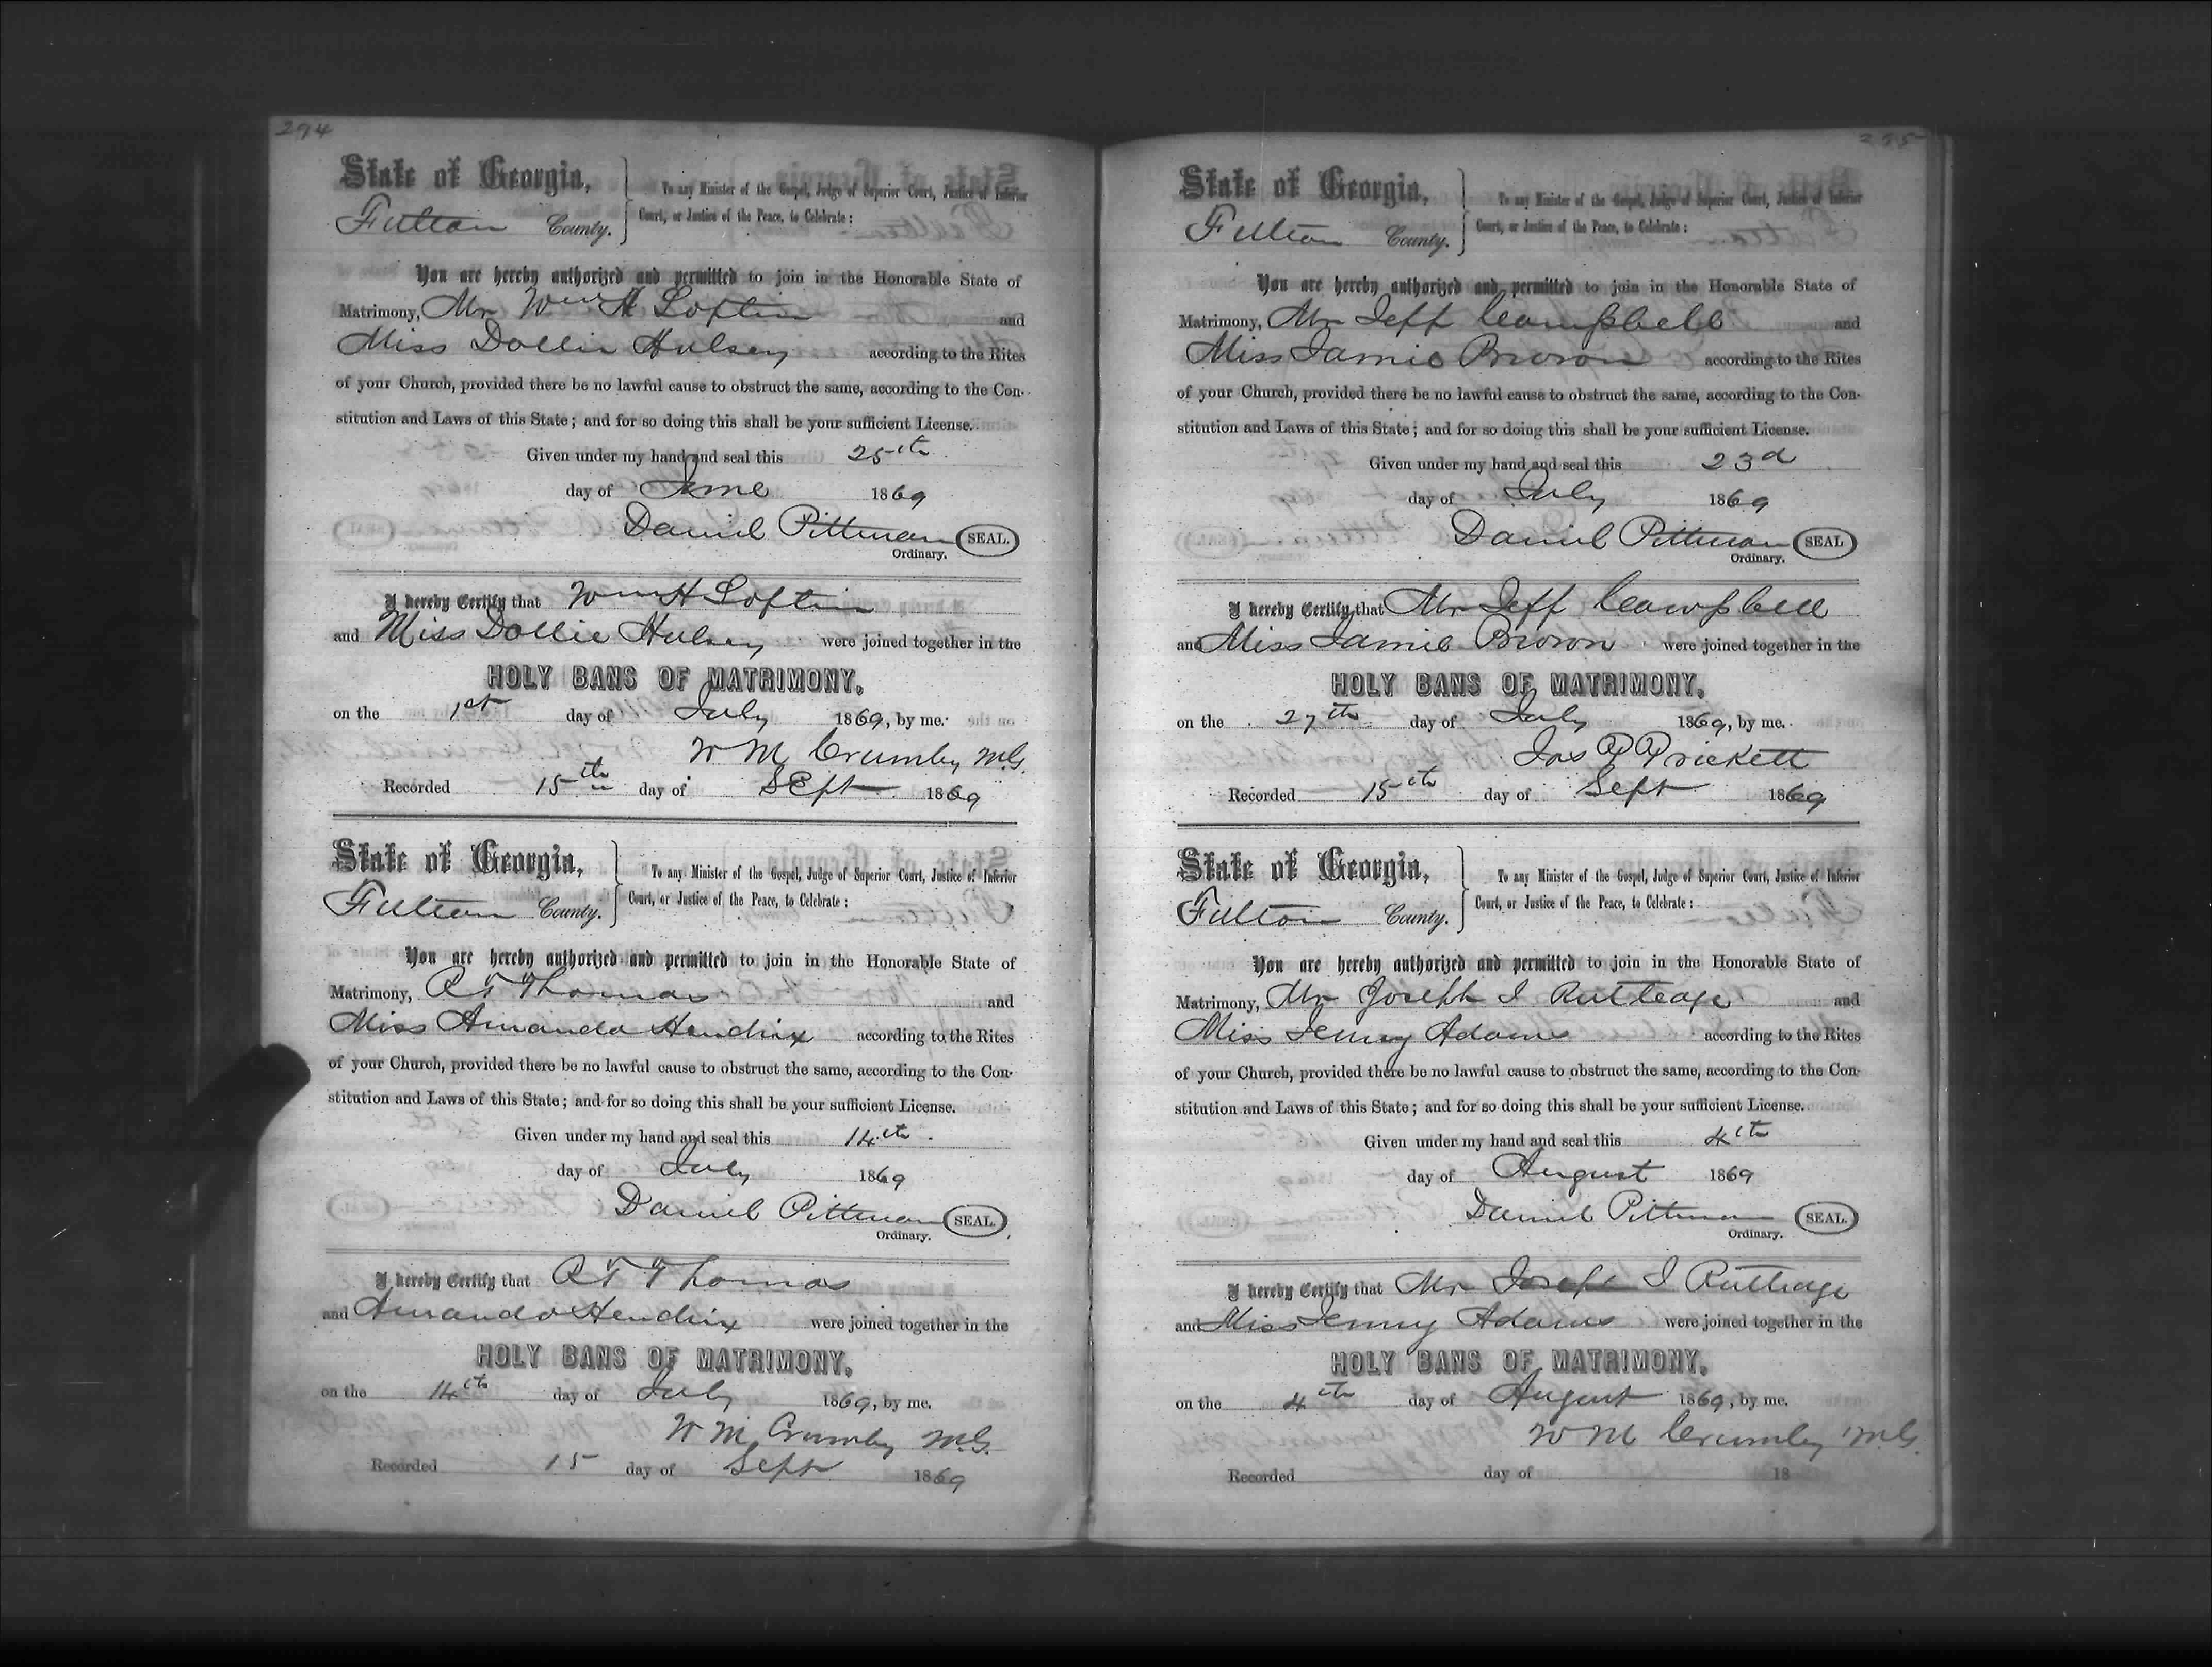 294
State of Georgia,
Fulton County.
To any Minister of the Gospel, Judge of Superior Court, Justice of Inferior
Court, or Justice of the Peace, to Celebrate:
You are hereby authorized and permitted to join in the Honorable State of
Matrimony, Mr Wm H Loftin and
Miss Dollie Hulsey according to the Rites
of your Church, provided there be no lawful cause to obstruct the same, according to the Con-
stitution and Laws of this State; and for so doing this shall be your sufficient License.
Given under my hand and seal this 25th
day of June 1869
Daniel Pittman SEAL.
Ordinary.
I hereby Certify that Wm H Loftin
and Miss Dollie Hulsey were joined together in the
HOLY BANS OF MATRIMONY,
on the 1st day of July 1869, by me.
W M Crumley M.G.
Recorded 15th day of Sept 1869
State of Georgia,
Fulton County.
To any Minister of the Gospel, Judge of Superior Court, Justice of Inferior
Court, or Justice of the Peace, to Celebrate:
You are hereby authorized and permitted to join in the Honorable State of
Matrimony, R T Thomas and
Miss Amanda Hendrix according to the Rites
of your Church, provided there be no lawful cause to obstruct the same, according to the Con-
stitution and Laws of this State; and for so doing this shall be your sufficient License.
Given under my hand and seal this 14th
day of July 1869
Daniel Pittman SEAL.
Ordinary.
I hereby Certify that R T Thomas
and Amanda Hendrix were joined together in the
HOLY BANS OF MATRIMONY,
on the 14th day of July 1869, by me.
W M Crumley M.G.
Recorded 15 day of Sept 1869
295
State of Georgia,
Fulton County.
To any Minister of the Gospel, Judge of Superior Court, Justice of Inferior
Court, or Justice of the Peace, to Celebrate:
You are hereby authorized and permitted to join in the Honorable State of
Matrimony, Mr Jeff Campbell and
Miss Jamie Brown according to the Rites
of your Church, provided there be no lawful cause to obstruct the same, according to the Con-
stitution and Laws of this State; and for so doing this shall be your sufficient License.
Given under my hand and seal this 23d
day of July 1869
Daniel Pittman SEAL
Ordinary.
I hereby Certify that Mr Jeff Campbell
and Miss Jamie Brown were joined together in the
HOLY BANS OF MATRIMONY,
on the 27th day of July 1869, by me.
Jos P Prickett
Recorded 15th day of Sept 1869
State of Georgia,
Fulton County.
To any Minister of the Gospel, Judge of Superior Court, Justice of Inferior
Court, or Justice of the Peace, to Celebrate:
You are hereby authorized and permitted to join in the Honorable State of
Matrimony, Mr Joseph J Rutledge and
Miss Jenny Adams according to the Rites
of your Church, provided there be no lawful cause to obstruct the same, according to the Con-
stitution and Laws of this State; and for so doing this shall be your sufficient License.
Given under my hand and seal this 4th
day of August 1869
Daniel Pittman SEAL.
Ordinary.
I hereby Certify that Mr Joseph J Rutledge
and Miss Jenny Adams were joined together in the
HOLY BANS OF MATRIMONY,
on the 4th day of August 1869, by me.
W M Crumley M.G.
Recorded day of 18